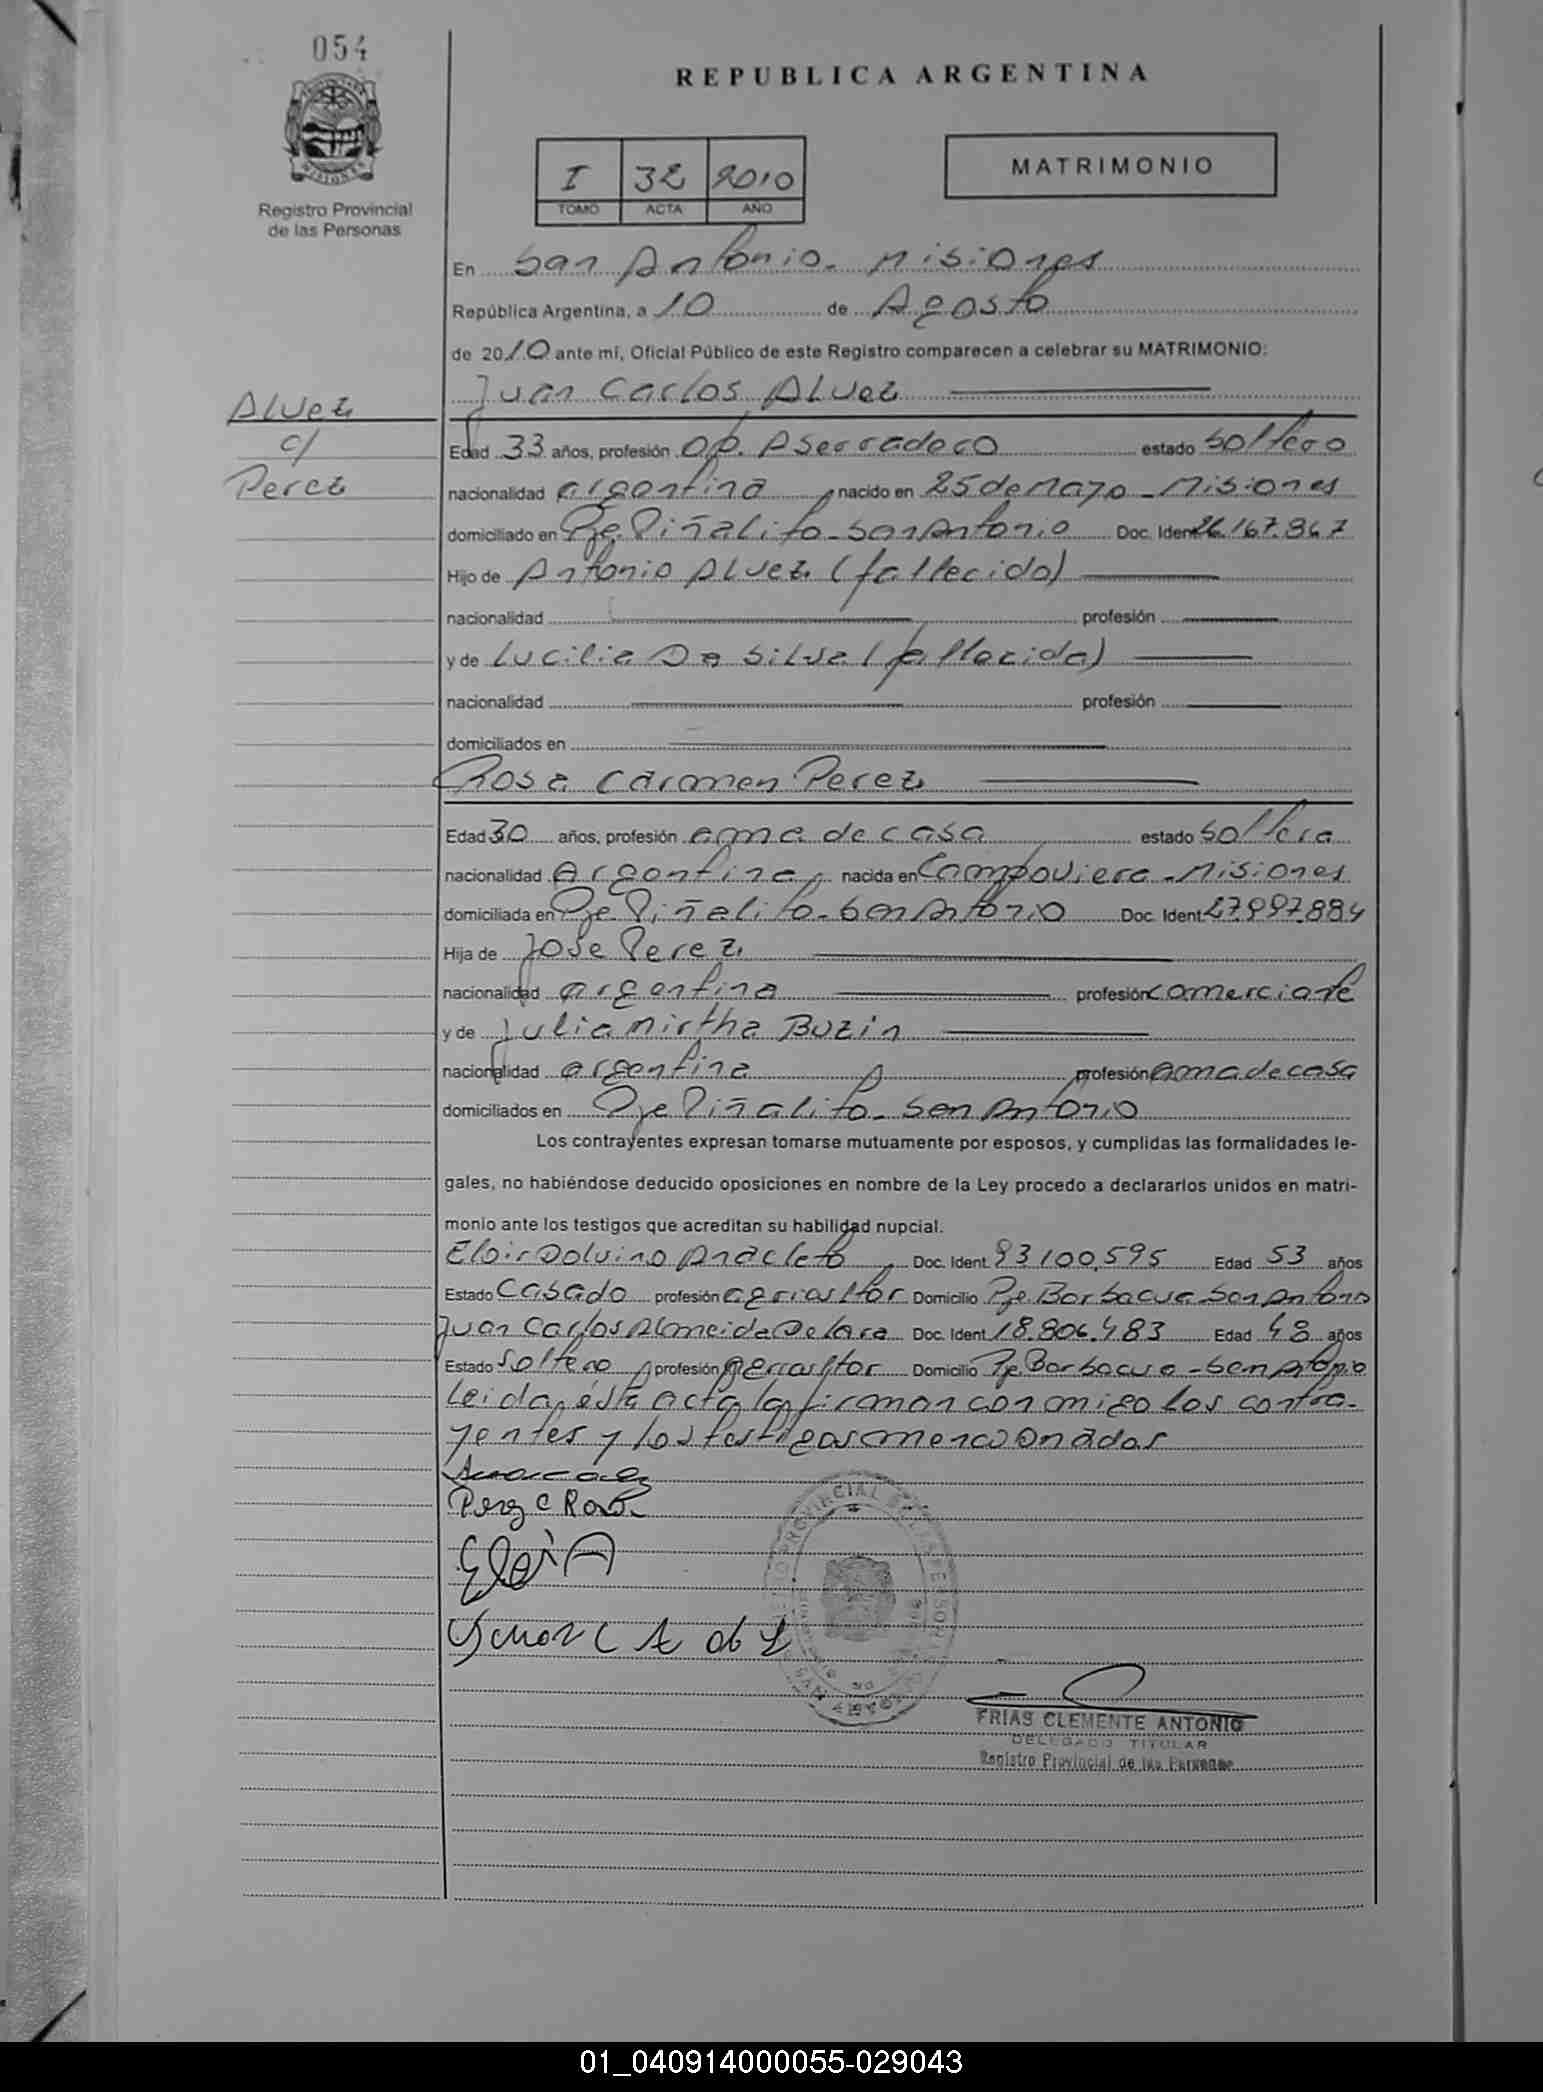 054
REPUBLICA ARGENTINA
MATRIMONIO
I 32 2010
TOMO ACTA AÑO
Registro Provincial
de las Personas
En San Antonio - Misiones
República Argentina, a 10 de Agosto
de 2010 ante mí, Oficial Público de este Registro comparecen a celebrar su MATRIMONIO:
Juan Carlos Alvez
Alvez
c/
Perez
Edad 33 años, profesión Op. Aserradero estado Soltero
nacionalidad argentina nacido en 25 de Mayo - Misiones
domiciliado en Pje. Piñalito - San Antonio Doc. Ident 26.167.867
Hijo de Antonio Alvez (fallecido)
nacionalidad profesión
y de Lucilia Da Silva (fallecida)
nacionalidad profesión
domiciliados en
Rosa Carmen Perez
Edad 30 años, profesión ama de casa estado Soltera
nacionalidad Argentina, nacida en Campo Viera - Misiones
domiciliada en Pje Piñalito - San Antonio Doc. Ident 27.997.884
Hija de Jose Perez
nacionalidad argentina profesión comerciante
y de Julia Mirtha Buzin
nacionalidad argentina profesión ama de casa
domiciliados en Pje Piñalito - San Antonio
Los contrayentes expresan tomarse mutuamente por esposos, y cumplidas las formalidades le-
gales, no habiéndose deducido oposiciones en nombre de la Ley procedo a declararlos unidos en matri-
monio ante los testigos que acreditan su habilidad nupcial.
Eloir Dolvino Anacleto Doc. Ident. 93100.595 Edad 53 años
Estado Casado profesión agricultor Domicilio Pje. Barbacua San Antonio
Juan Carlos Almeida De Lara Doc. Ident 18.806.483 Edad 48 años
Estado Soltero profesión agricultor Domicilio Pje Barbacua - San Antonio
leida, ésta acta la firman conmigo los contra-
yentes y los testigos mencionados
Perez C Rosa
Eloir A
Juan C A d L
REGISTRO PROVINCIAL DE LAS PERSONAS
SAN ANTONIO
FRIAS CLEMENTE ANTONIO
DELEGADO TITULAR
Registro Provincial de las Personas
01_040914000055-029043